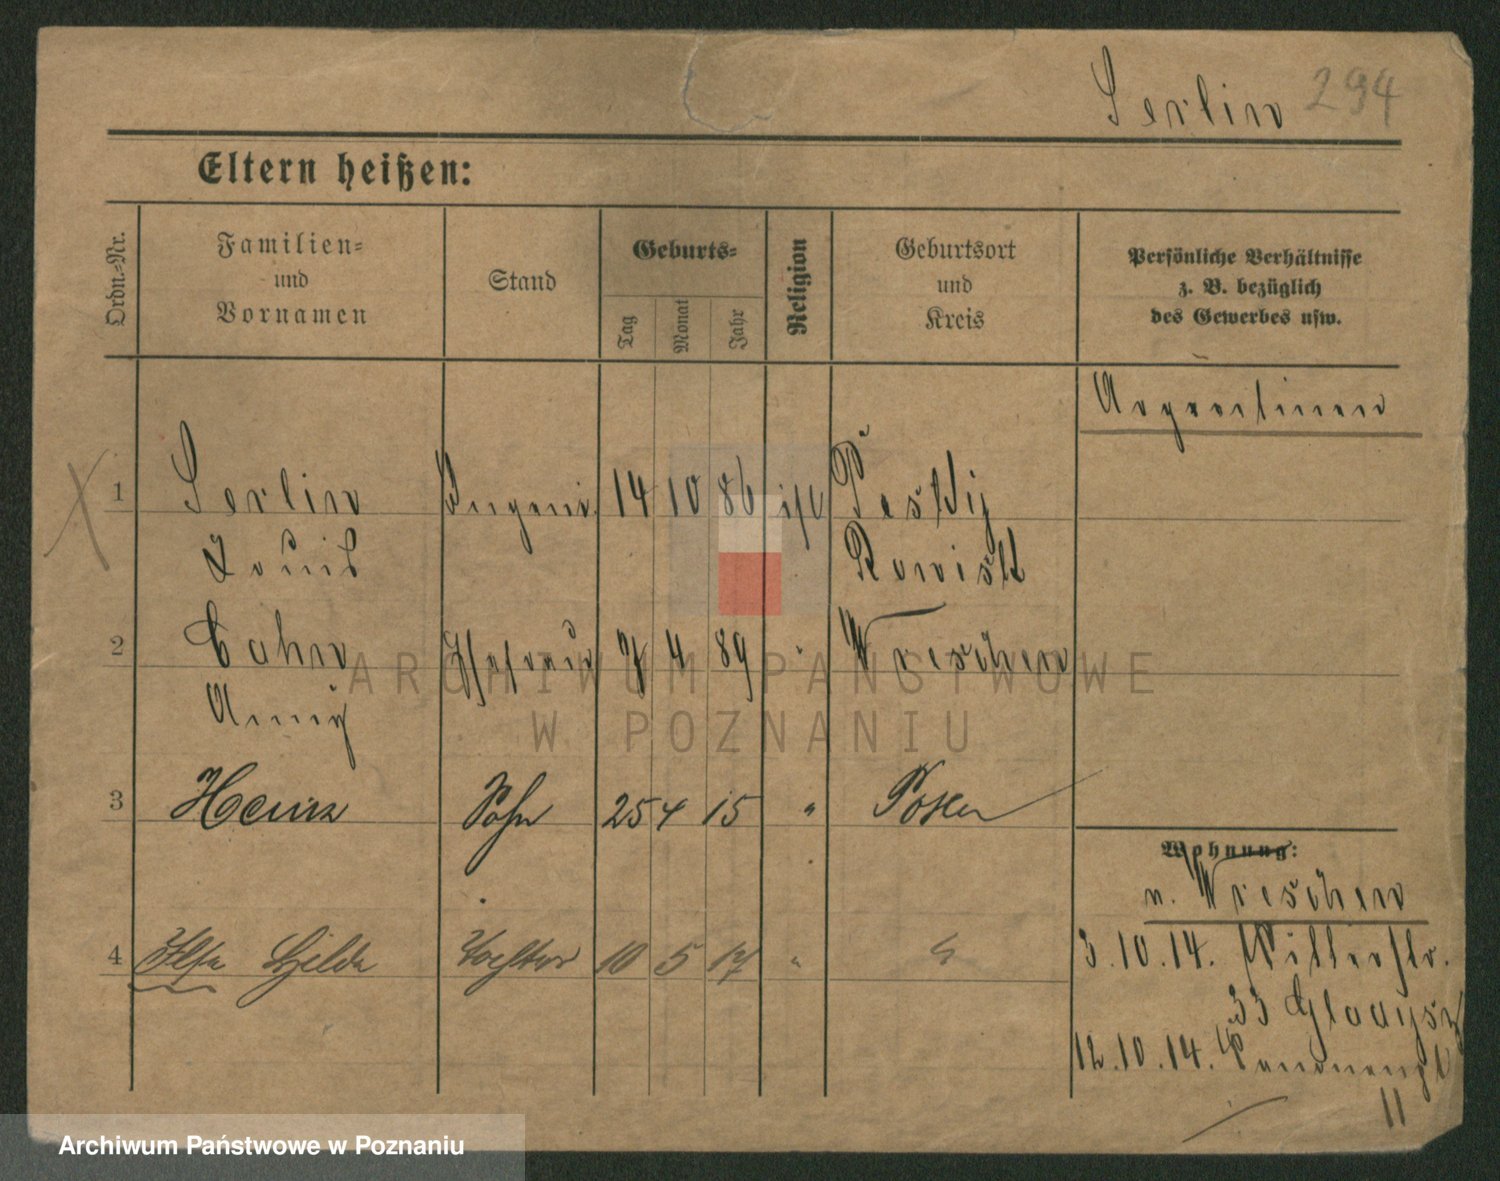 Serlin 294
Eltern heißen:
Ordn.-Nr.
Familien-
und
Vornamen
Stand
Geburts-
Tag
Monat
Jahr
Religion
Geburtsort
und
Kreis
Persönliche Verhältnisse
z. B. bezüglich
des Gewerbes usw.
Argentinien
1 Serlin Ingenieur 14 10 86 isr
Louis Rawitsch
2 Cohn Ehefrau 7 4 89 " Wreschen
Anny
3 Heinz Sohn 25 4 15 " Posen
Wohnung:
v. Wreschen
4 Ilse Hilde Tochter 10 5 17 "
3.10.14. Ritterstr.
33 Gladysz
12.10.14.
11
ARCHIWUM PAŃSTWOWE
W POZNANIU
Archiwum Państwowe w Poznaniu